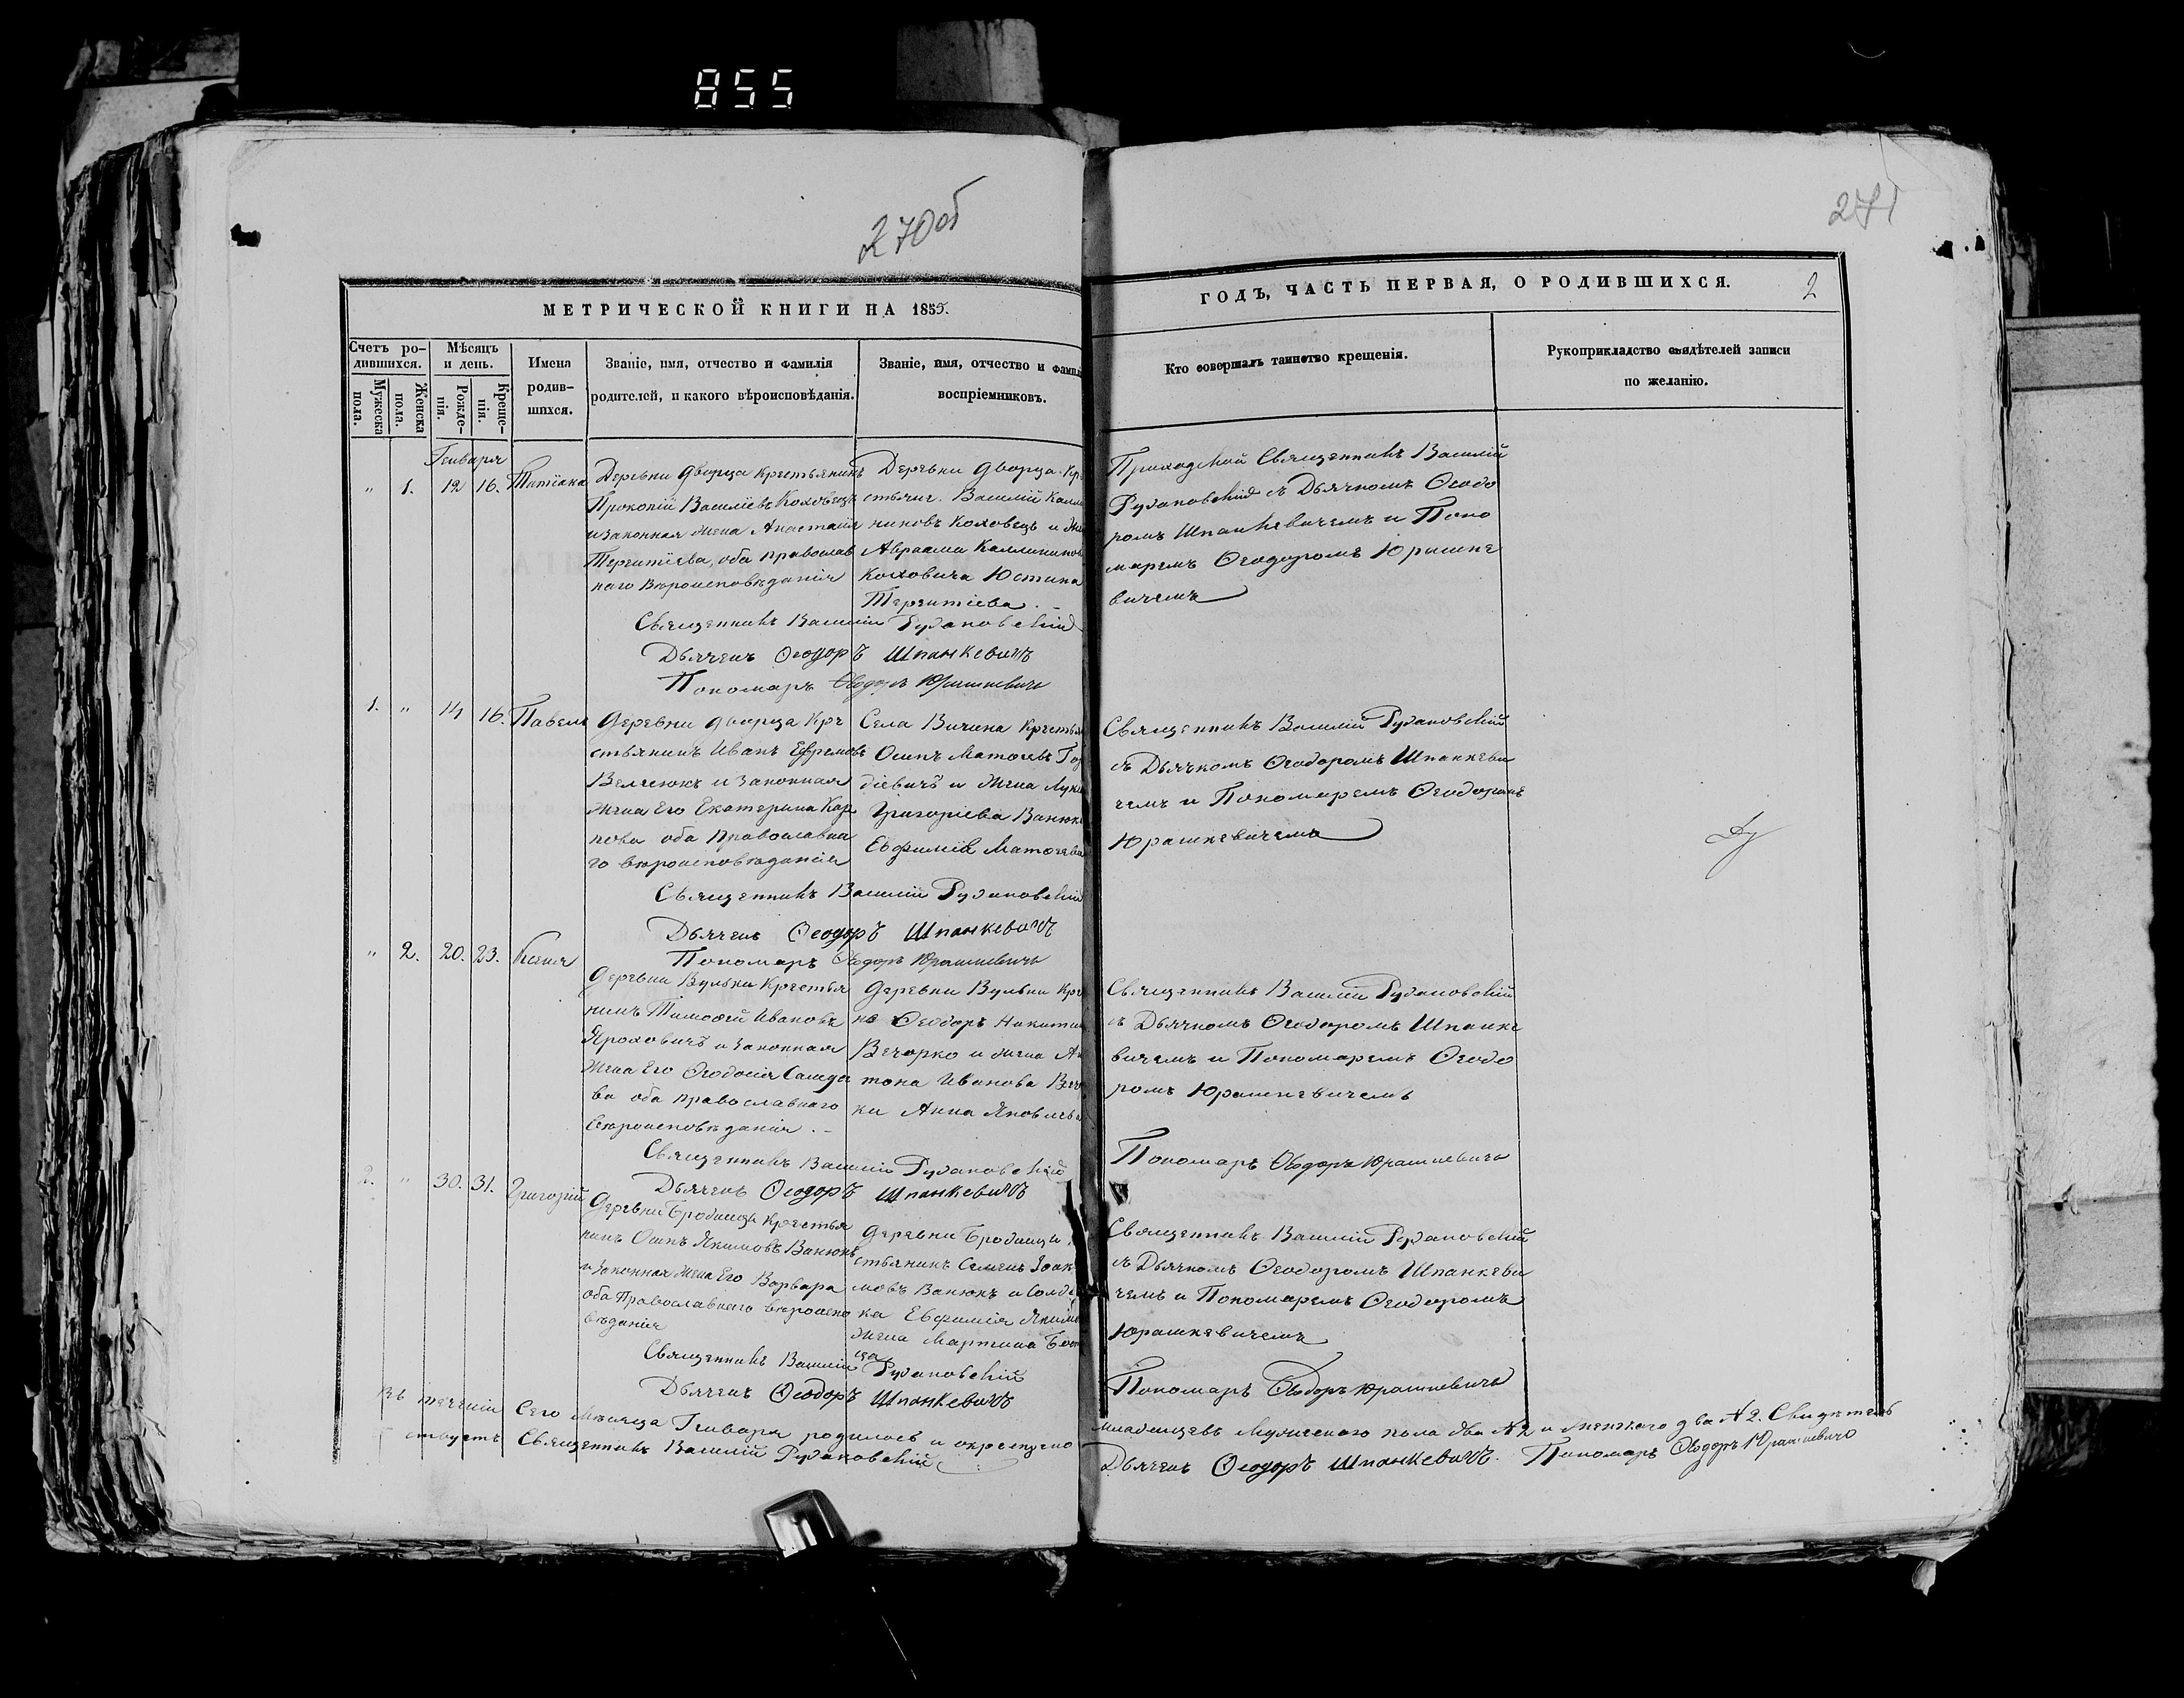 855
270об
271
МЕТРИЧЕСКОЙ КНИГИ НА 1855.
ГОДЪ, ЧАСТЬ ПЕРВАЯ, О РОДИВШИХСЯ.
2
Счетъ ро-
дившихся.
Мужеска
пола.
Женска
пола.
Мѣсяцъ
и день.
Рожде-
нія.
Креще-
нія.
Имена
родив-
шихся.
Званіе, имя, отчество и фамилія
родителей, и какого вѣроисповѣданія.
Званіе, имя, отчество и фамил
воспріемниковъ.
Кто совершалъ таинство крещенія.
Рукоприкладство свидѣтелей записи
по желанію.
Генваря
" 1. 12 16. Татіана
Деревни Дворца крестьянинъ
Прокопій Василіевъ Коховецъ
и законная жена Анастасія
Терентіева, оба православ
наго вѣроисповѣданія
Деревни Дворца Кре
стьянг. Василій Калли
никовъ Коховецъ и же
Авраама Каллиников
Коховича Юстина
Терентіева.
Приходской Священникъ Василій
Рудаковскій съ Дьячкомъ Ѳеодо
ромъ Шпанкевичемъ и Поно
маремъ Ѳеодоромъ Юрашке
вичемъ
Священникъ Василій Рудаковскій
Дьячекъ Ѳеодоръ Шпанкевичъ
Пономарь Ѳеодоръ Юрашкевичъ
1. " 14 16. Павелъ
Деревни Дворца Кре
стьянинъ Иванъ Ефремовъ
Велесюкъ и законная
жена Его Екатерина Кар
пова оба Православна
го вѣроисповѣданія
Села Вичина Крестья
Осипъ Матѳеевъ Гор
діевичъ и жена Луки
Григоріева Ванюк
Евфимія Матѳеева
Священникъ Василій Рудаковскій
съ Дьячкомъ Ѳеодоромъ Шпанкеви
чемъ и Пономаремъ Ѳеодоромъ
Юрашкевичемъ
Священникъ Василій Рудаковскій
Дьячекъ Ѳеодоръ Шпанкевичъ
Пономарь Ѳеодоръ Юрашкевичъ
" 2. 20. 23. Ксенія
Деревни Вульки Крестья
нинъ Тимоѳей Ивановъ
Ярохович и законная
жена Его Ѳеодосія Самуи
ва оба православнаго
вѣроисповѣданія.
Деревни Вульки Кре
нъ Ѳеодоръ Никитин
Вечорко и жена Ан
тона Иванова Вечо
ки Анна Яковлева
Священникъ Василій Рудаковскій
съ Дьячкомъ Ѳеодоромъ Шпанке
вичемъ и Пономаремъ Ѳеодо
ромъ Юрашкевичемъ
Священникъ Василій Рудаковскій
Дьячекъ Ѳеодоръ Шпанкевичъ
Пономарь Ѳеодоръ Юрашкевичъ
2. " 30. 31. Григорій
Деревни Бродницы крестья
нинъ Осипъ Якимовъ Ванюкъ
и законная жена Его Варвара
оба Православнаго вѣроиспо
вѣданія
Деревни Бродницы
стьянинъ Семенъ Іоаки
мовъ Ванюкъ и Солда
ка Евфимія Якимо
жена Мартина
ца
Священникъ Василій Рудаковскій
съ Дьячкомъ Ѳеодоромъ Шпанкеви
чемъ и Пономаремъ Ѳеодоромъ
Юрашкевичемъ
Священникъ Василій Рудаковскій
Дьячекъ Ѳеодоръ Шпанкевичъ
Пономарь Ѳеодоръ Юрашкевичъ
Въ теченіи Сего Мѣсяца Генваря родилось и окрещено младенцевъ мужескаго пола два № 2 и женскаго два № 2. Свидѣтель
ствуетъ Священникъ Василій Рудаковскій. Дьячекъ Ѳеодоръ Шпанкевичъ. Пономарь Ѳеодоръ Юрашкевичъ